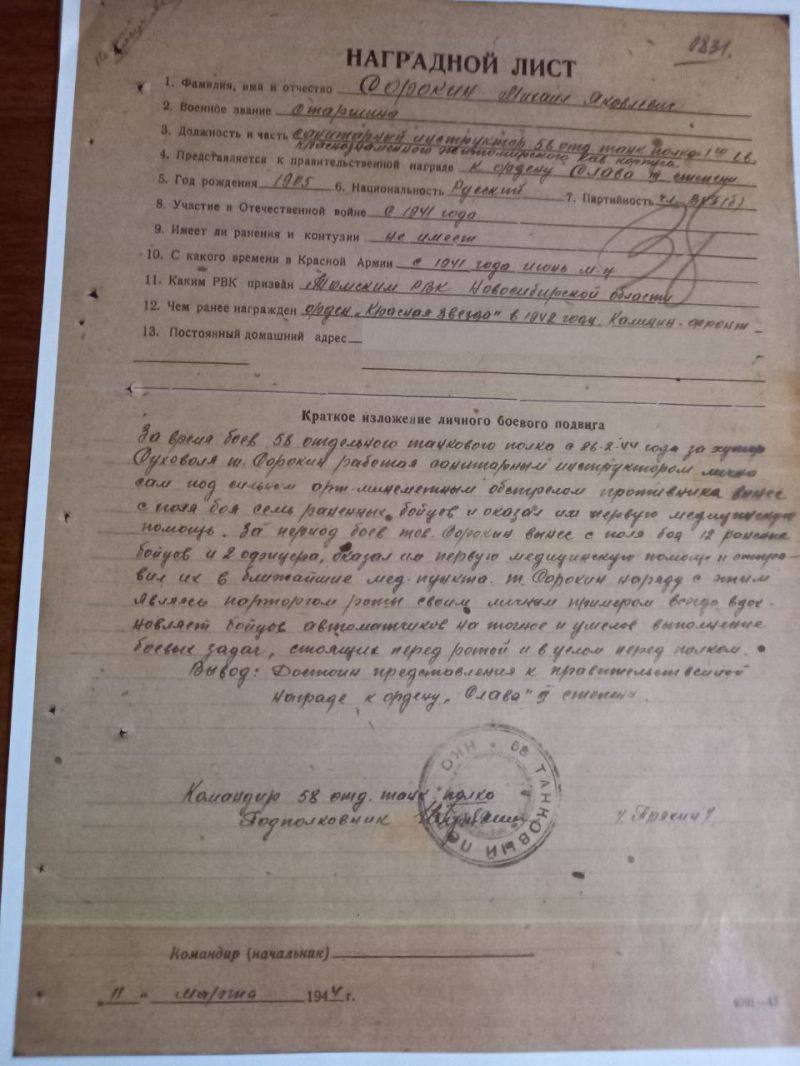 1831.
НАГРАДНОЙ ЛИСТ
1. Фамилия, имя и отчество Сорокин Михаил Яковлевич
2. Военное звание Старшина
3. Должность и часть санитарный инструктор 58 отд танк полка 1го гв.
Краснознаменного Житомирского кав корпуса
4. Представляется к правительственной награде к ордену Слава III степени
5. Год рождения 1905 6. Национальность Русский 7. Партийность чл. ВКП(б)
8. Участие в Отечественной войне С 1941 года
9. Имеет ли ранения и контузии не имеет
38
10. С какого времени в Красной Армии с 1941 года июнь м-ц
11. Каким РВК призван Томским РВК Новосибирской области
12. Чем ранее награжден орден „Красная Звезда" в 1942 году. Калинин. фронт
13. Постоянный домашний адрес
Краткое изложение личного боевого подвига
За время боев 58 отдельного танкового полка с 26-2-44 года за хутор
Суховоля т. Сорокин работая санитарным инструктором лично
сам под сильным арт-минометным обстрелом противника вынес
с поля боя семь раненных бойцов и оказал им первую медицинскую
помощь. За период боев тов. Сорокин вынес с поля боя 12 раненых
бойцов и 2 офицера, оказал им первую медицинскую помощь и отпра-
вил их в ближайшие мед-пункта. т. Сорокин наряду с этим
являясь парторгом роты своим личным примером всегда вдох-
новляет бойцов автоматчиков на точное и умелое выполнение
боевых задач, стоящих перед ротой и в целом перед полком.
Вывод: Достоин представления к правительственной
награде к ордену „Слава" III степени.
Командир 58 отд. танк полка
Подполковник
НКО • 58 ТАНКОВЫЙ ПОЛК
Командир (начальник)
„11" марта 1944 г.